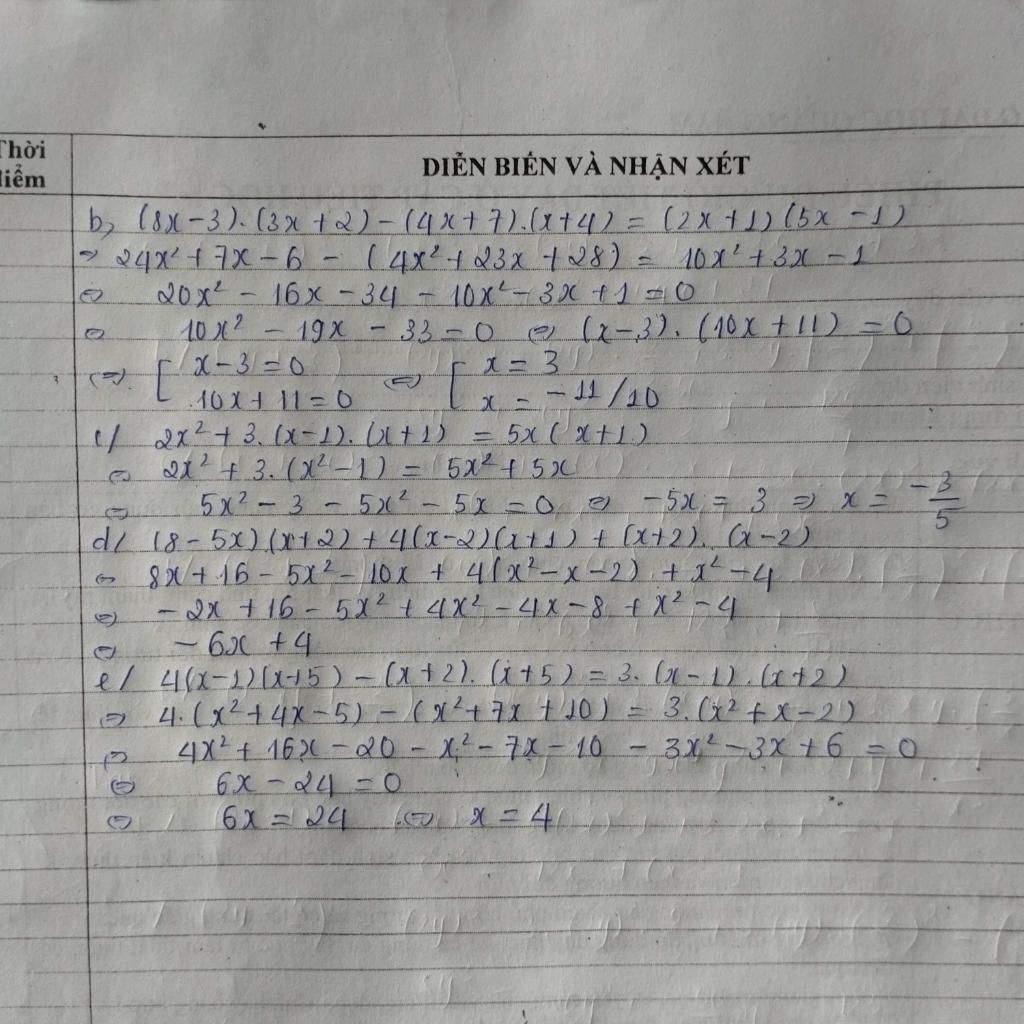 Thời
điểm
DIỄN BIẾN VÀ NHẬN XÉT
b, (8x-3).(3x+2)-(4x+7).(x+4) = (2x+1)(5x-1)
⇔ 24x²+7x-6 - (4x²+23x+28) = 10x²+3x-1
⇔ 20x² - 16x - 34 - 10x² - 3x + 1 = 0
⇔ 10x² - 19x - 33 = 0 ⇔ (x-3).(10x+11) = 0
⇔ [ x-3=0 ⇔ [ x = 3
10x+11=0 x = -11/10
c/ 2x²+3.(x-1).(x+1) = 5x(x+1)
⇔ 2x² + 3.(x²-1) = 5x²+5x
⇔ 5x² - 3 - 5x² - 5x = 0 ⇔ -5x = 3 ⇒ x = -3/5
d/ (8-5x)(x+2)+4(x-2)(x+1)+(x+2).(x-2)
⇔ 8x+16-5x²-10x + 4(x²-x-2) + x²-4
⇔ -2x+16-5x²+4x²-4x-8+x²-4
⇔ -6x+4
e/ 4(x-1)(x+5)-(x+2).(x+5) = 3.(x-1).(x+2)
⇔ 4.(x²+4x-5)-(x²+7x+10) = 3.(x²+x-2)
⇔ 4x²+16x-20-x²-7x-10-3x²-3x+6 = 0
⇔ 6x-24=0
⇔ 6x=24 ⇔ x=4